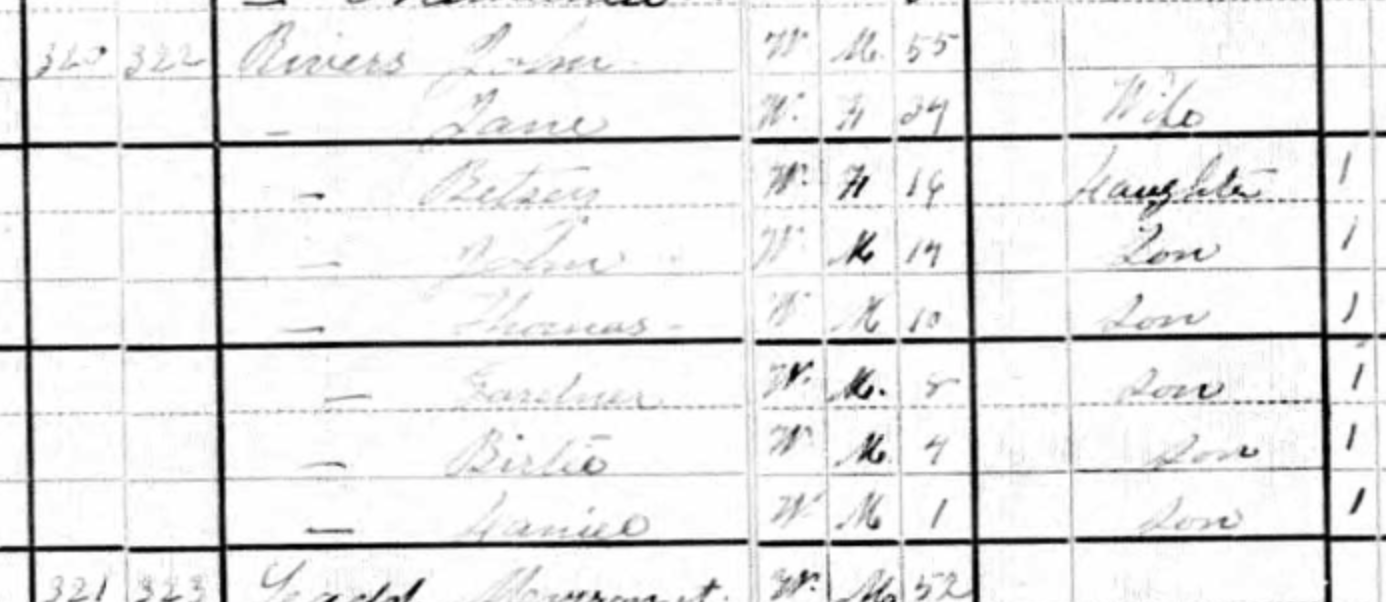 320 322 Rivers John W. M. 55
— Jane W. F 34 Wife
— Betsey W. F 16 Daughter 1
— John W. M 14 Son 1
— Thomas W M 10 Son 1
— Gardner W. M. 8 Son 1
— Birtie W M. 4 Son 1
— Daniel W M 1 Son 1
321 323 Ladd W. M 52